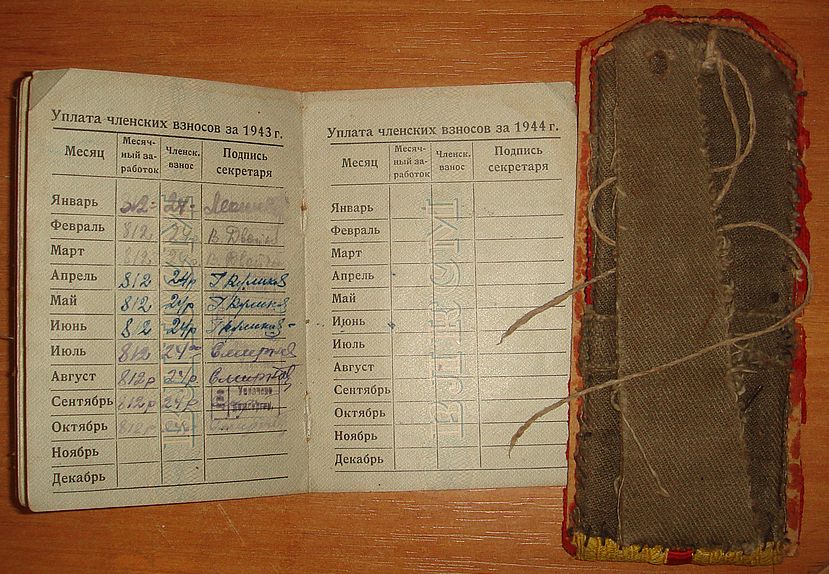 Уплата членских взносов за 1943 г.
Месяц Месяч-ный за-работок Членск. взнос Подпись секретаря
Январь 812 24
Февраль 812 24
Март 812 24
Апрель 812 24р Куликов
Май 812 24р Куликов
Июнь 812 24р Куликов
Июль 812 24 Смирнов
Август 812р 24р Смирнов
Сентябрь 812р 24р
Октябрь 812р 24р
Ноябрь
Декабрь
Уплата членских взносов за 1944 г.
Месяц Месяч-ный за-работок Членск. взнос Подпись секретаря
Январь
Февраль
Март
Апрель
Май
Июнь
Июль
Август
Сентябрь
Октябрь
Ноябрь
Декабрь
ВЛКСМ